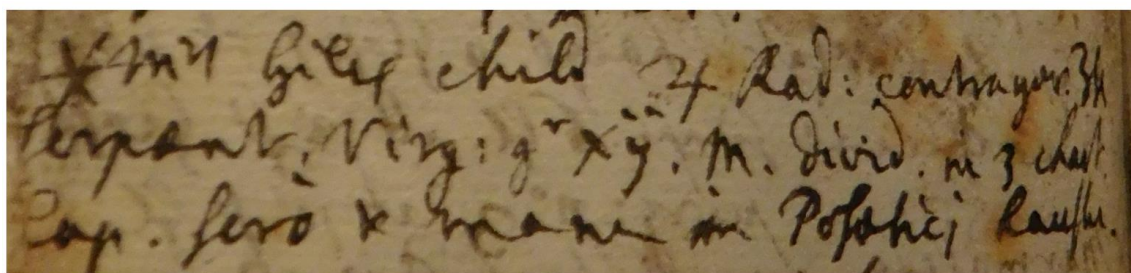 Mrs Giles child ♃ Rad: contrayer: ʒß
Serpent. Virg: gr xij. M. divid. in 3 chart.
Cap. sero & mane in Possetici haustu.